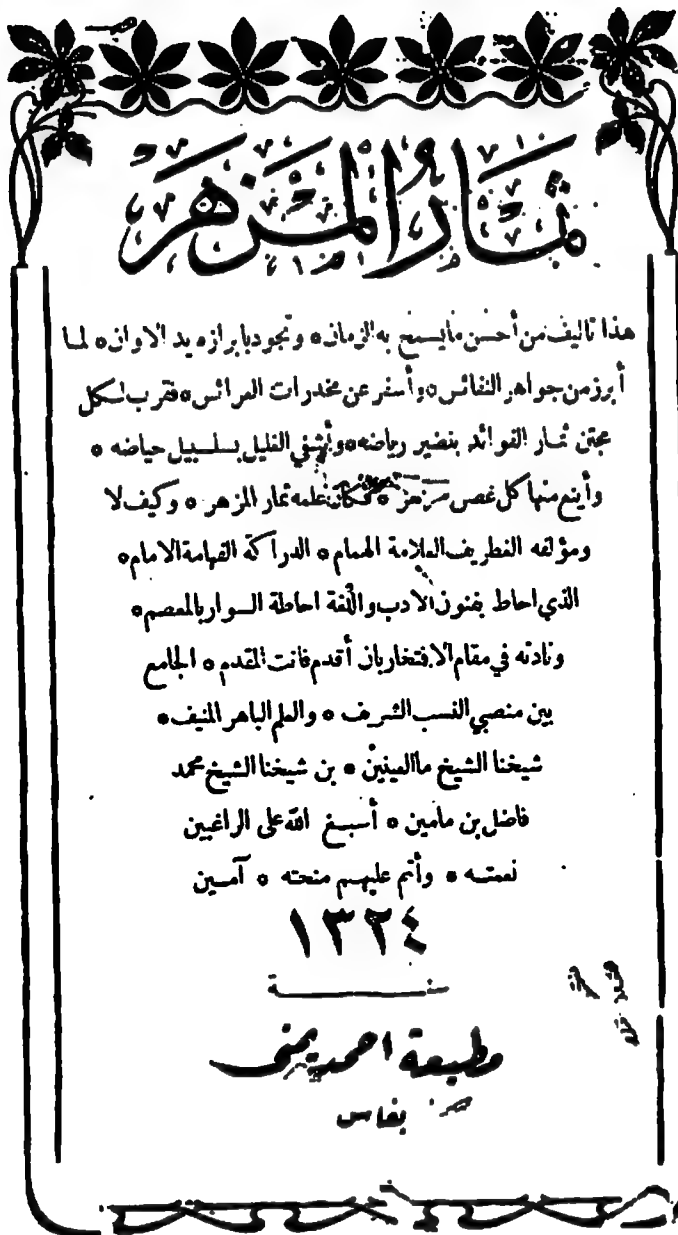 ثِمَارُ الْمِزْهَر
هذا تاليف من أحسن مايسمح به الزمان * وتجود بابرازه يد الاوان * لما
أبرز من جواهر النفائس * وأسفر عن مخدرات العرائس * فقرب لكل
مجتن ثمار الفوائد بنضير رياضه * وأشفي الغليل بسلسبيل حياضه *
وأينع منها كل غصن مزهر * نظمه ثمار المزهر * وكيف لا
ومؤلفه الغطريف العلامة الهمام * الدراكة الفهامة الامام *
الذي احاط بفنون الادب واللغة احاطة السوار بالمعصم *
ونادته في مقام الافتخار بان أقدم فانت المقدم * الجامع
بين منصبي النسب الشريف * والعلم الباهر المنيف *
شيخنا الشيخ ماالعينين * بن شيخنا الشيخ محمد
فاضل بن مامين * أسبغ الله على الراغبين
نعمته * وأتم عليهم منحته * آمين
١٣٢٤
سنة
مطبعة احمد يمنى
بفاس